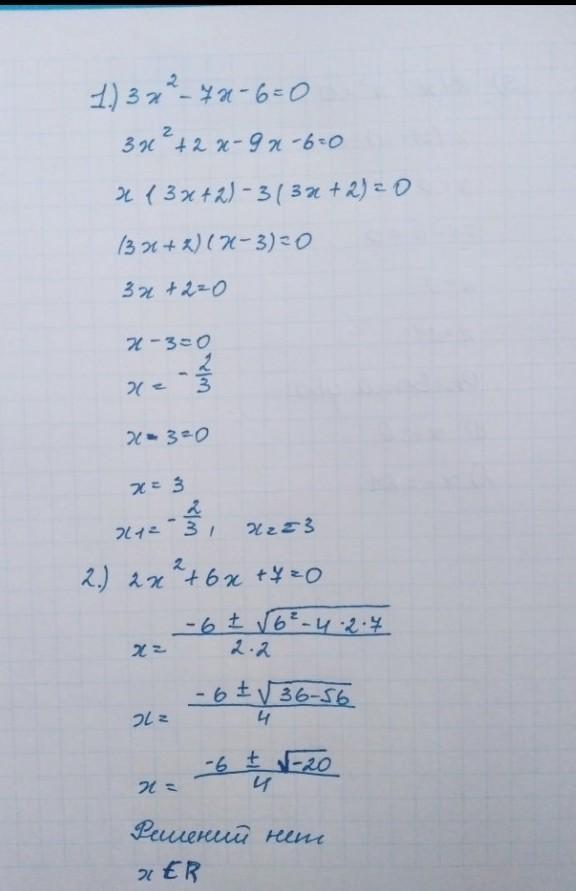 1.) 3x² - 7x - 6 = 0
3x² + 2x - 9x - 6 = 0
x (3x + 2) - 3 (3x + 2) = 0
(3x + 2) (x - 3) = 0
3x + 2 = 0
x - 3 = 0
x = - 2/3
x - 3 = 0
x = 3
x₁ = - 2/3, x₂ = 3
2.) 2x² + 6x + 7 = 0
x = (-6 ± √(6² - 4 · 2 · 7)) / (2 · 2)
x = (-6 ± √(36 - 56)) / 4
x = (-6 ± √(-20)) / 4
Решений нет
x ∈ R